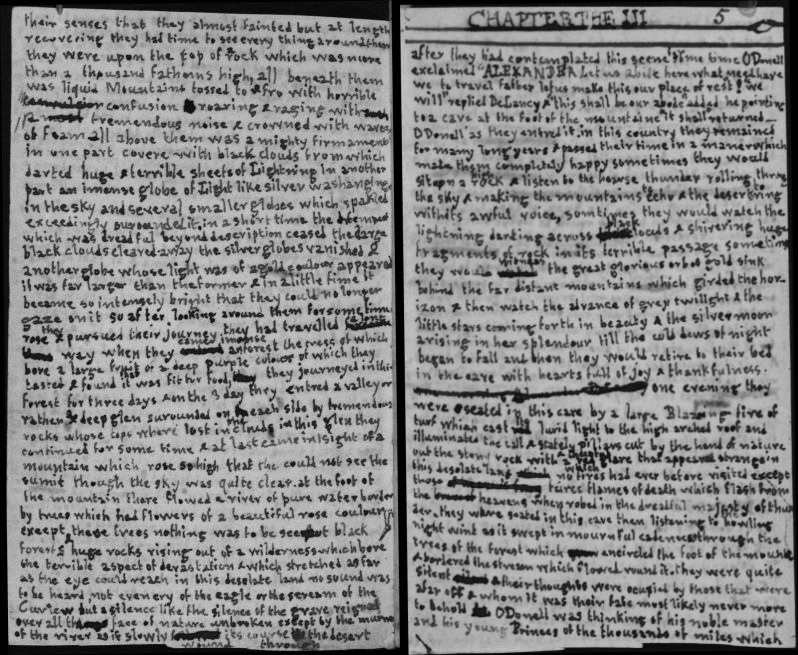 their senses that they almost fainted but at length
recovering they had time to see every thing around them
they were upon the top of a rock which was more
than a thousand fathoms high, all beneath them
was liquid Mountains tossed to & fro with horrible
confusion roaring & raging with
a tremendous noise & crowned with waves
of foam all above them was a mighty firmament
in one part covere with black clouds from which
darted huge & terrible sheets of Lightning in another
part an immense globe of Light like silver was hanging
in the sky and several smaller globes which sparkled
exceedingly surounded it, in a short time the tempest
which was dreadful beyond description ceased the large
black clouds cleared away the silver globes vanished &
another globe whose light was of a gold coulour appeared
it was far larger than the former & in a little time it
became so intensely bright that they could no longer
gaze on it so after looking around them for some time
they rose & pursued their journey. they had travelled a long
way when they came immense forest the trees of which
bore a large fruit of a deep purple colour of which they
tasted & found that it was fit for food, they journeyed in this
forest for three days & on the 3 day they entred a valley or
rather a deep glen surounded on each side by tremendous
rocks whose tops where lost in the clouds in this glen they
continued for some time & at last came in sight of a
mountain which rose so high that the could not see the
sumit though the sky was quite clear. at the foot of
the mountain there flowed a river of pure water borderd
by trees which had flowers of a beautiful rose coulour
except these trees nothing was to be seen but black
forests & huge rocks rising out of a wilderness which bore
the terrible aspect of devastation & which stretched as far
as the eye could reach in this desolate land no sound was
to be heard not even ery of the eagle or the scream of the
Curlew but a silence like the silence of the grave reigned
over all the face of nature unbroken except by the murmur
of the river as it slowly wound its course through the desert
CHAPTER THE III 5
after they had contemplated this scene some time O Donell
exclaimed "ALEXANDER Let us abide here what need have
we to travel father let us make this our place of rest! we
will" replied DeLancy & this shall be our abode added he pointing
to a cave at the foot of the mountaine it shall returned
O Donell as they entred it. in this country they remained
for many long years & passed their time in a maner which
made them completely happy sometimes they would
sit upon a rock & listen to the hoarse thunder rolling through
the sky & making the mountains to echo & the desert ring
with its awful voice, somtimes they would watch the
lightning darting across black clouds & shivering huge
fragments of rock in its terrible passage sometimes
they would witness the great glorious orb of gold sink
behind the far distant mountains which girded the hor-
izon & then watch the advance of grey twilight & the
little stars coming forth in beauty & the silver moon
arising in her splendour till the cold dews of night
began to fall and then they would retire to their bed
in the cave with hearts full of joy & thankfulness.
one evening they
were seated in this cave by a large Blazing fire of
turf which cast lurid light to the high arched roof and
illuminated the tall & stately pillars cut by the hand of nature
out the stony rock with a glare that appeared strange in
this desolate land which no fires had ever before visited except
those fierce flames of death which flash from
the heavens when robed in the dreadful majesty of thun
der, they were seated in this cave then listening to howling
night wind as it swept in mournful cadences through the
trees of the forest which encircled the foot of the mountain
& bordered the stream which flowed round it. they were quite
silent & their thoughts were ocupied by those that were
afar off & whom it was their fate most likely never more
to behold O Donell was thinking of his noble master
and his young Princes of the thousands of miles which